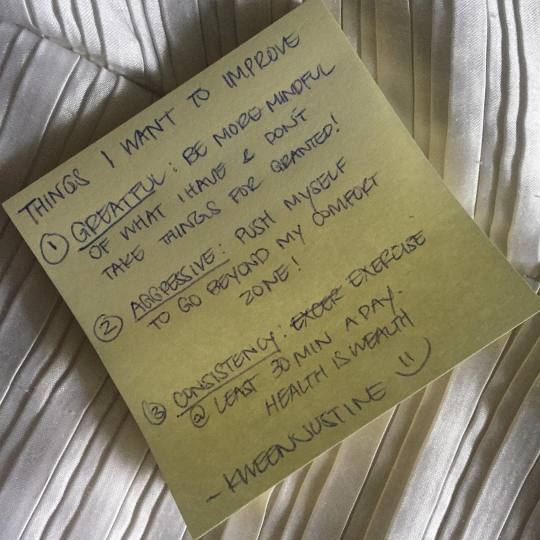 THINGS I WANT TO IMPROVE
① GREATFUL: BE MORE MINDFUL
OF WHAT I HAVE & DON'T
TAKE THINGS FOR GRANTED!
② AGGRESSIVE: PUSH MYSELF
TO GO BEYOND MY COMFORT
ZONE!
③ CONSISTENCY: EXCER EXERCISE
@ LEAST 30 MIN A DAY.
HEALTH IS WEALTH
- KWEENJUSTINE